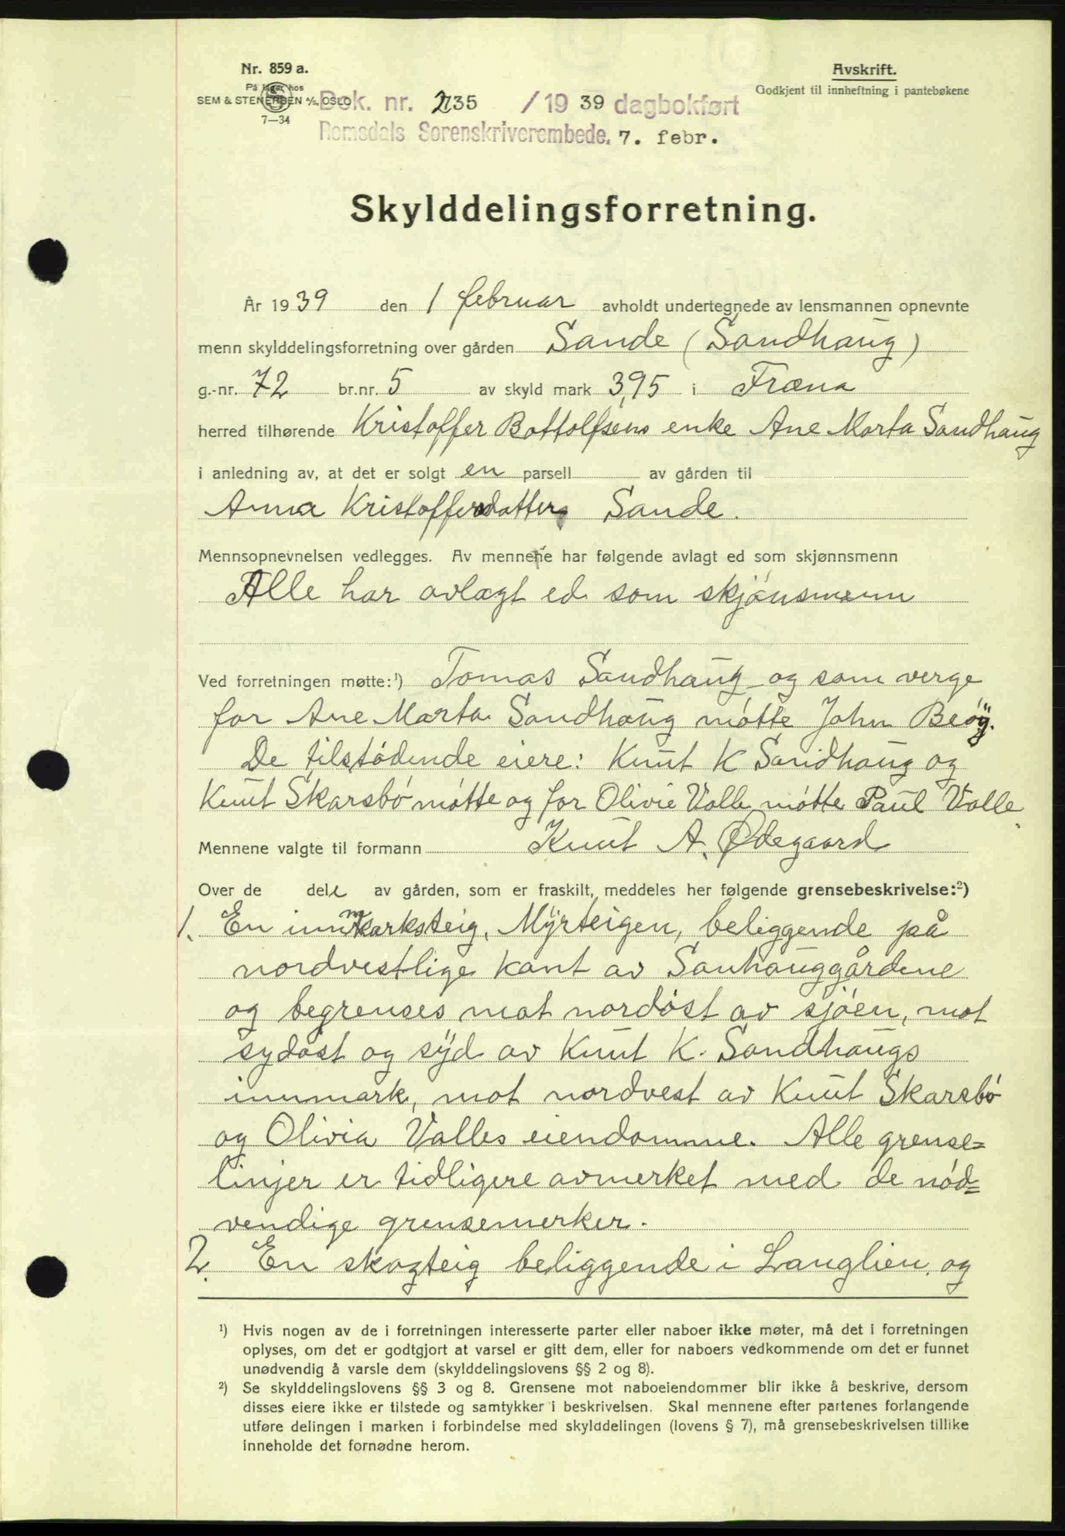 Nr. 859 a.
På lager hos
SEM & STENERSEN A/S, OSLO
7—34
Avskrift.
Godkjent til innheftning i pantebøkene
Dok. nr. 235 /1939 dagbokført
Romsdals Sorenskriverembede. 7. febr.
Skylddelingsforretning.
År 1939 den 1 februar avholdt undertegnede av lensmannen opnevnte
menn skylddelingsforretning over gården Sande (Sandhaug)
g.-nr. 72 br.nr. 5 av skyld mark 3,95 i Fræna
herred tilhørende Kristoffer Bottolfsens enke Ane Marta Sandhaug
i anledning av, at det er solgt en parsell av gården til
Anna Kristoffersdatter Sande.
Mennsopnevnelsen vedlegges. Av mennene har følgende avlagt ed som skjønnsmenn
Alle har avlagt ed som skjönsmenn
Ved forretningen møtte:¹) Tomas Sandhaug og som verge
for Ane Marta Sandhaug mötte John
De tilstödende eiere: Knut K Sandhaug og
Knut Skarsbö mötte og for Olivie Valle mötte Paul Valle.
Mennene valgte til formann Knut A. Ødegaard
Over de dele av gården, som er fraskilt, meddeles her følgende grensebeskrivelse:²)
1. En innmarksteig, Myrteigen, beliggende på
nordvestlige kant av Sanhauggårdene
og begrenses mot nordöst av sjöen, mot
sydöst og syd av Knut K. Sandhaugs
innmark, mot nordvest av Knut Skarsbö
og Olivia Valles eiendomme. Alle grense=
linjer er tidligere avmerket med de nöd=
vendige grensemerker.
2. En skogteig beliggende i Langlien, og
¹) Hvis nogen av de i forretningen interesserte parter eller naboer ikke møter, må det i forretningen
oplyses, om det er godtgjort at varsel er gitt dem, eller for naboers vedkommende om det er funnet
unødvendig å varsle dem (skylddelingslovens §§ 2 og 8).
²) Se skylddelingslovens §§ 3 og 8. Grensene mot naboeiendommer blir ikke å beskrive, dersom
disses eiere ikke er tilstede og samtykker i beskrivelsen. Skal mennene efter partenes forlangende
utføre delingen i marken i forbindelse med skylddelingen (lovens § 7), må grensebeskrivelsen tillike
inneholde det fornødne herom.